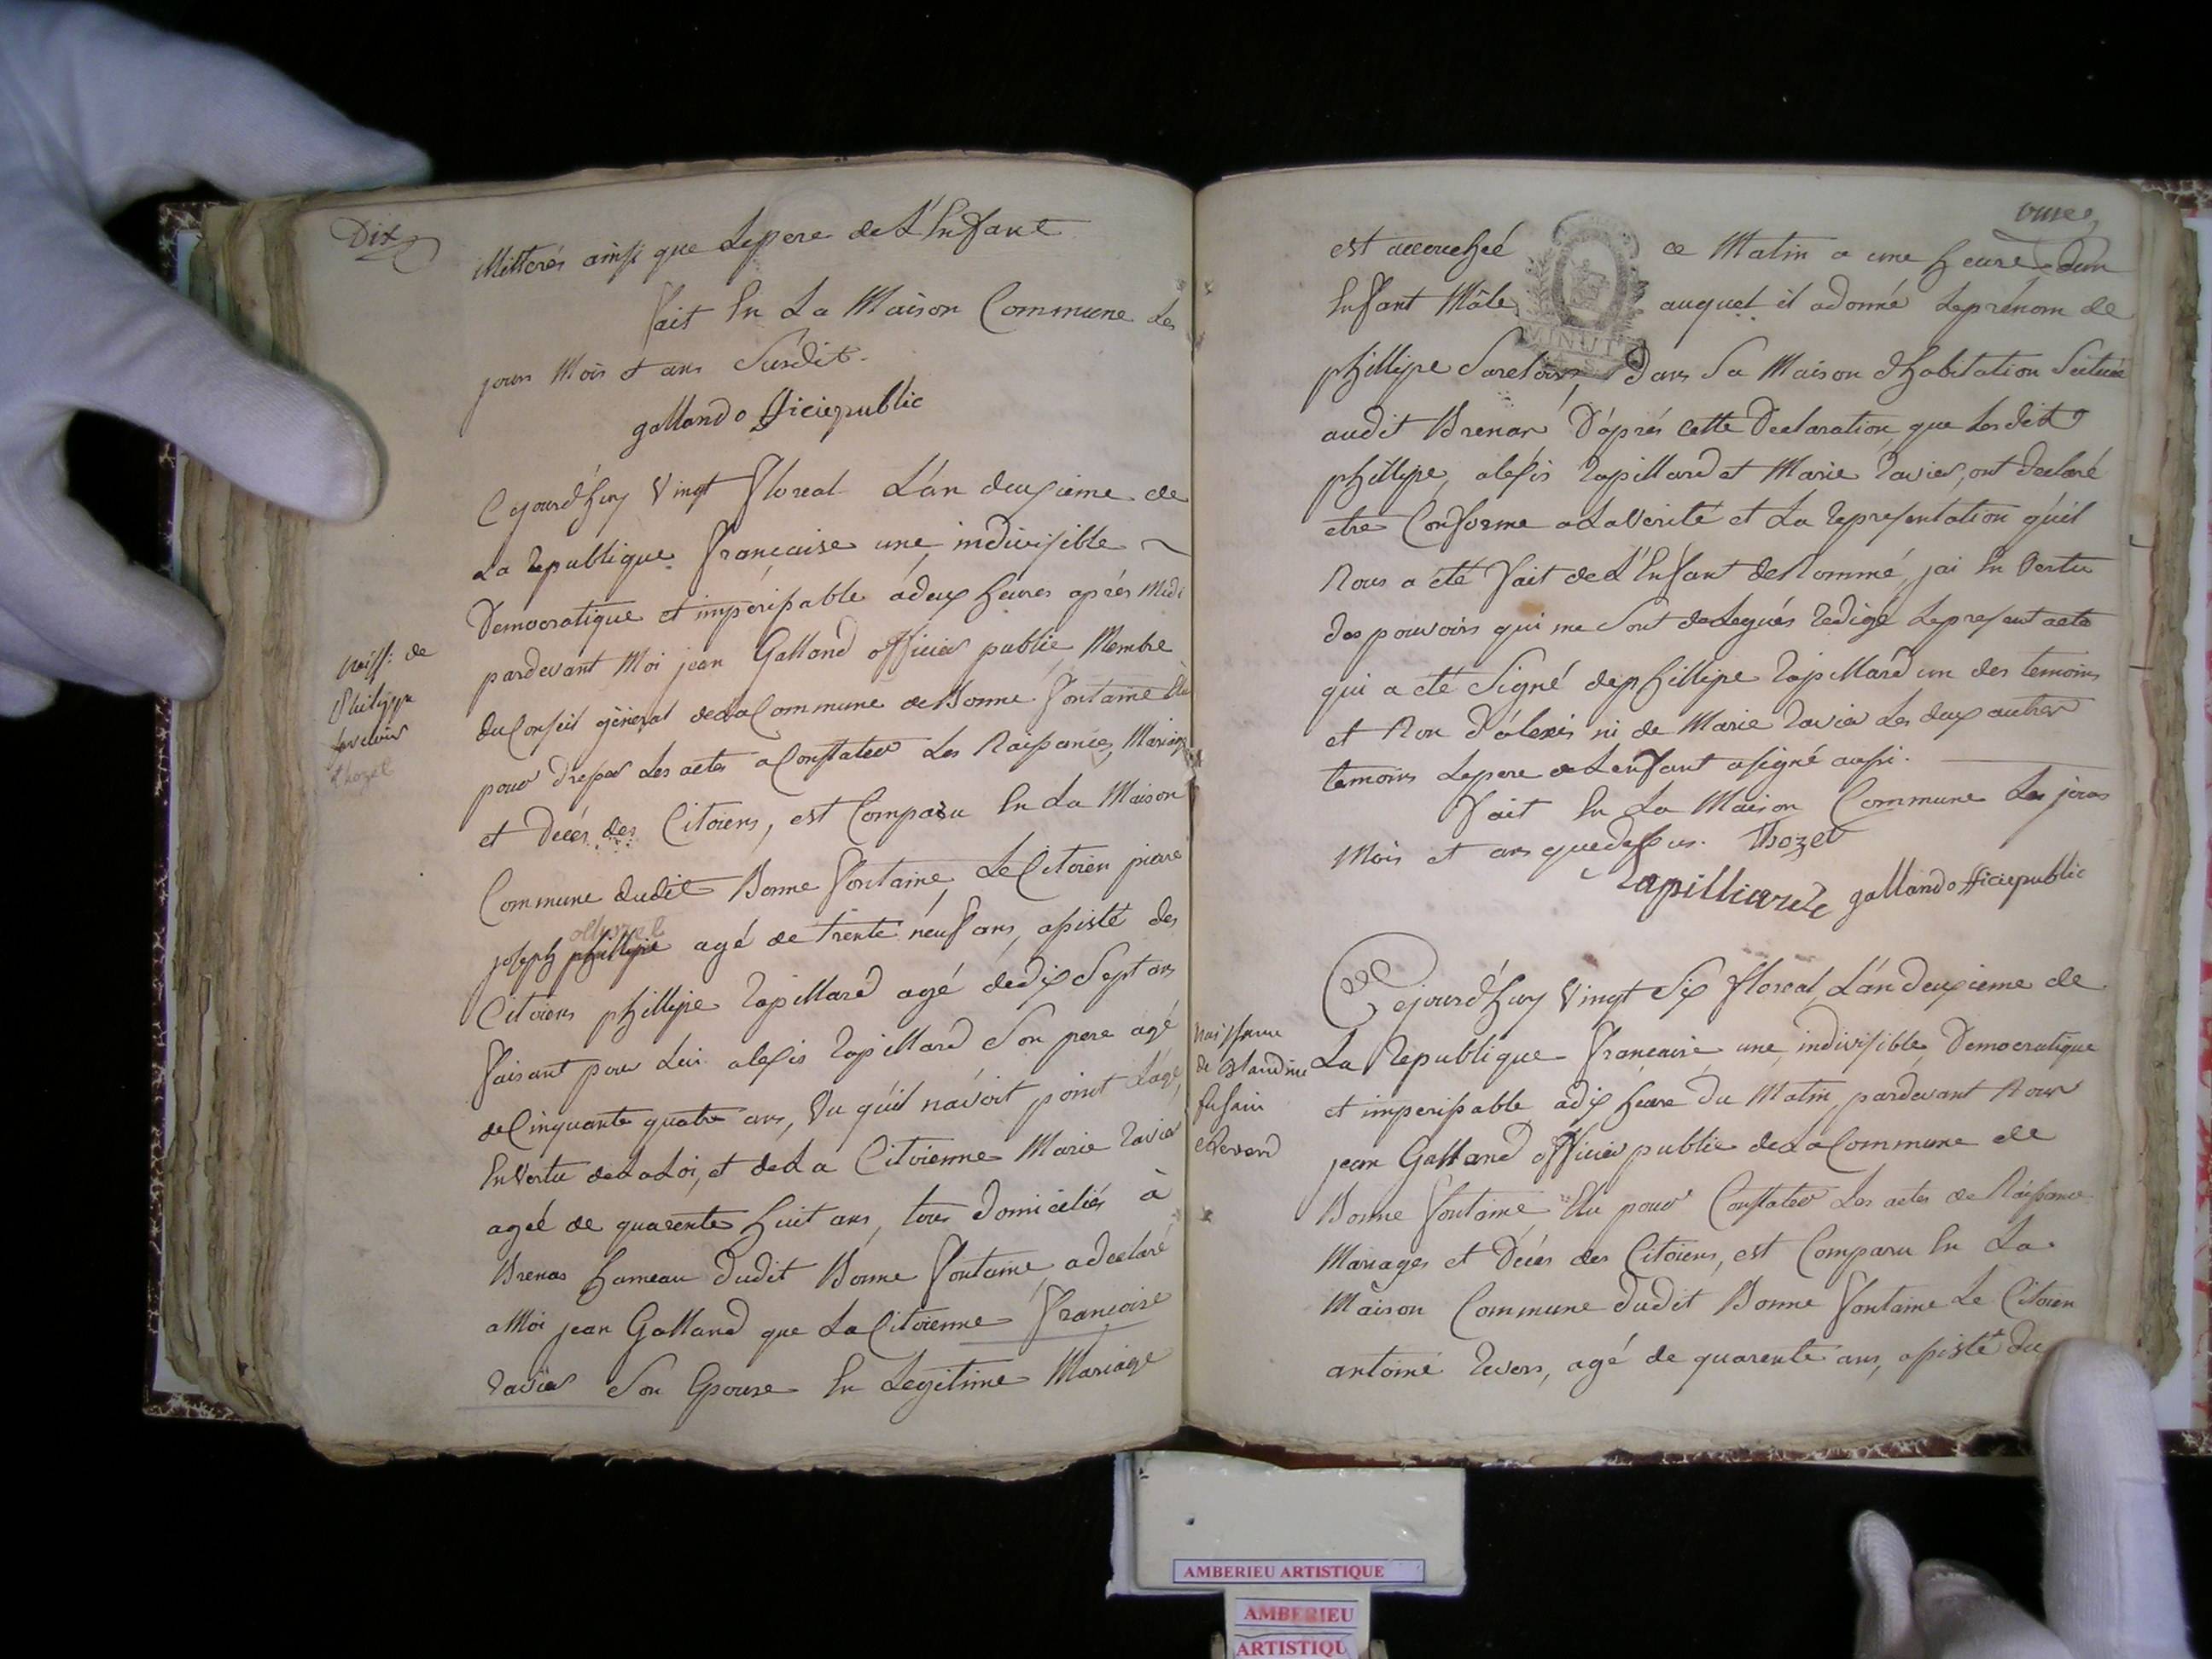 Dix
illitterés ainsi que Lepere de L'Enfant
fait En La Maison Commune Les
jours Mois et ans Susdit.
galland officiepublic
Cejourd'huy Vingt floreal L'an deuxieme de
La Republique francaise une, indivisible
Democratique et imperissable adeux heures aprés Midi
pardevant Moi jean Galland officier public, Membre
duConseil géneral delaCommune deBonne fontaine Elu
pour dresser Les actes aConstater Les Naissances, Mariages
et Decés des Citoiens, est Comparu En La Maison
Commune dudit Bonne fontaine, LeCitoien piere
joseph phillipe agé de trente neuf ans, assisté des
Citoiens phillipe Rapillard agé dedix Sept ans
faisant pour Lui alexis Rapillard Son pere agé
deCinquante quatre ans, Vu qu'il n'avoit point L'age
EnVertu deLaLoi, et deLa Citoienne Marie Ravier
ageé de quarente huit ans, tous domiciliés à
Brenas hameau dudit Bonne fontaine, adeclaré
aMoi jean Galland que LaCitoienne francoise
Ravier Son Epouse En Legitime Mariage
naiss: de
Philippe
thozet
onze
est accouchée ce Matin a une heure dun
Enfant Mâle auquel il adonné Leprénom de
MINUTE
phillipe dans Sa Maison d'habitation Scituée
audit Brenas D'aprés cette Declaration, que Lesdits
phillipe, alexis Rapillard et Marie Ravier, ont declaré
etre Conforme aLaVerité et La representation qu'il
Nous a été fait deL'Enfant deNommé, jai En Vertu
des pouvoirs qui me Sont delegués Redigé Lepresent acte
qui a été Signé dephillipe Rapillard un des temoins
et Non d'alexis ni de Marie Ravier Les deux autres
temoins Lepere deLenfant asigné aussi.
fait En La Maison Commune Les jours
Mois et ans quedessus. Thozet
Rapilliard galland officiepublic
Cejourd'huy Vingt Six floreal, L'an deuxieme de
La Republique francaise une, indivisible, Democratique
et imperissable adix heure du Matin, pardevant Nous
jean Galland officier public deLaCommune de
Bonne fontaine Elu pour Constater Les actes de Naissance
Mariages et Décés des Citoiens, est Comparu En La
Maison Commune dudit Bonne fontaine Le Citoien
antoine Revers, agé de quarente ans, assisté du
naissance
de Blandine
AMBERIEU ARTISTIQUE
AMBERIEU
ARTISTIQU